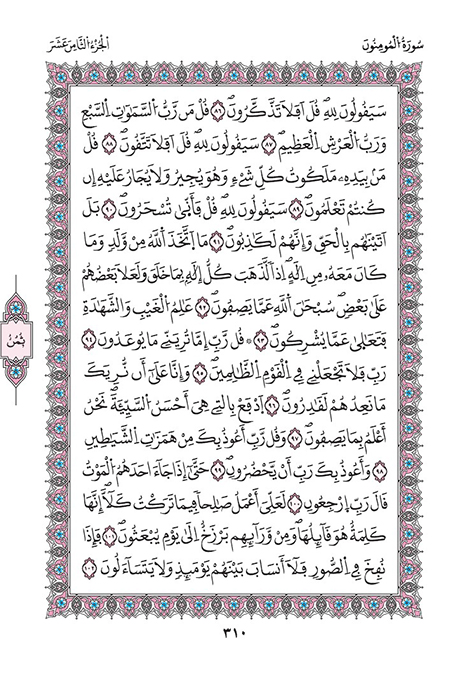 سُورَةُ الْمُومِنُونَ
الْجُزْءُ الثَّامِنَ عَشَرَ
سَيَقُولُونَ لِلهِ قُلَ اَفَلَا تَذَّكَّرُونَ ٨٦ قُلْ مَن رَّبُّ السَّمَٰوَٰتِ السَّبْعِ
وَرَبُّ الْعَرْشِ الْعَظِيمِ ٨٧ سَيَقُولُونَ لِلهِ قُلَ اَفَلَا تَتَّقُونَ ٨٨ قُلْ
مَنۢ بِيَدِهِۦ مَلَكُوتُ كُلِّ شَےْءٖ وَهُوَ يُجِيرُ وَلَا يُجَارُ عَلَيْهِ إِن
كُنتُمْ تَعْلَمُونَ ٨٩ سَيَقُولُونَ لِلهِ قُلْ فَأَنّ۪يٰ تُسْحَرُونَ ٩٠ بَلَ
اَتَيْنَٰهُم بِالْحَقِّ وَإِنَّهُمْ لَكَٰذِبُونَ ٩١ مَا اَ۪تَّخَذَ اَ۬للَّهُ مِنْ وَّلَدٖ وَمَا
كَانَ مَعَهُۥ مِنِ اِلَٰهٍ اِذاٗ لَّذَهَبَ كُلُّ إِلَٰهِۢ بِمَا خَلَقَ وَلَعَلَا بَعْضُهُمْ
عَلَىٰ بَعْضٖ سُبْحَٰنَ اَ۬للَّهِ عَمَّا يَصِفُونَ ٩٢ عَٰلِمُ الْغَيْبِ وَالشَّهَٰدَةِ
فَتَعَٰلَىٰ عَمَّا يُشْرِكُونَ ٩٣ ۞ قُل رَّبِّ إِمَّا تُرِيَنِّے مَا يُوعَدُونَ ٩٤
رَبِّ فَلَا تَجْعَلْنِے فِے الْقَوْمِ الظَّٰلِمِينَ ٩٥ وَإِنَّا عَلَىٰ أَن نُّرِيَكَ
مَا نَعِدُهُمْ لَقَٰدِرُونَ ٩٦ اَ۪دْفَعْ بِالتِے هِىَ أَحْسَنُ السَّيِّئَةَ نَحْنُ
أَعْلَمُ بِمَا يَصِفُونَ ٩٧ وَقُل رَّبِّ أَعُوذُ بِكَ مِنْ هَمَزَٰتِ الشَّيَٰطِينِ
٩٨ وَأَعُوذُ بِكَ رَبِّ أَنْ يَّحْضُرُونِ ٩٩ حَتَّىٰ إِذَا جَآءَ احَدَهُمُ الْمَوْتُ
قَالَ رَبِّ اِ۪رْجِعُونِ ١٠٠ لَعَلِّىَ أَعْمَلُ صَٰلِحاٗ فِيمَا تَرَكْتُ كَلَّآ إِنَّهَا
كَلِمَةٌ هُوَ قَآئِلُهَا وَمِنْ وَّرَآئِهِم بَرْزَخٌ اِلَىٰ يَوْمِ يُبْعَثُونَ ١٠١ فَإِذَا
نُفِخَ فِے الصُّورِ فَلَآ أَنسَابَ بَيْنَهُمْ يَوْمَئِذٖ وَلَا يَتَسَآءَلُونَ ١٠٢
ثُمُنُ
٣١٠